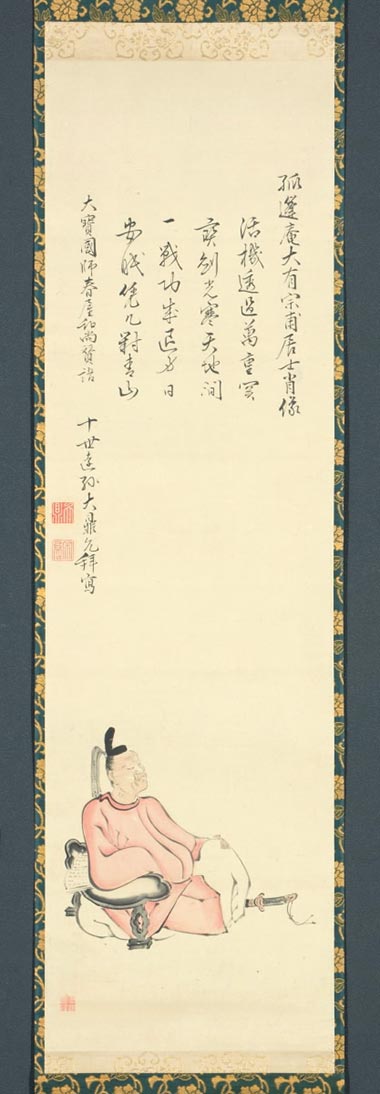 孤篷庵大有宗甫居士肖像
活機透過萬重関
寳劍光寒天地間
一戰功成日
安眠凭几對青山
大寶國師春屋和尚賛語
十世遠孫大鼎允拜寫